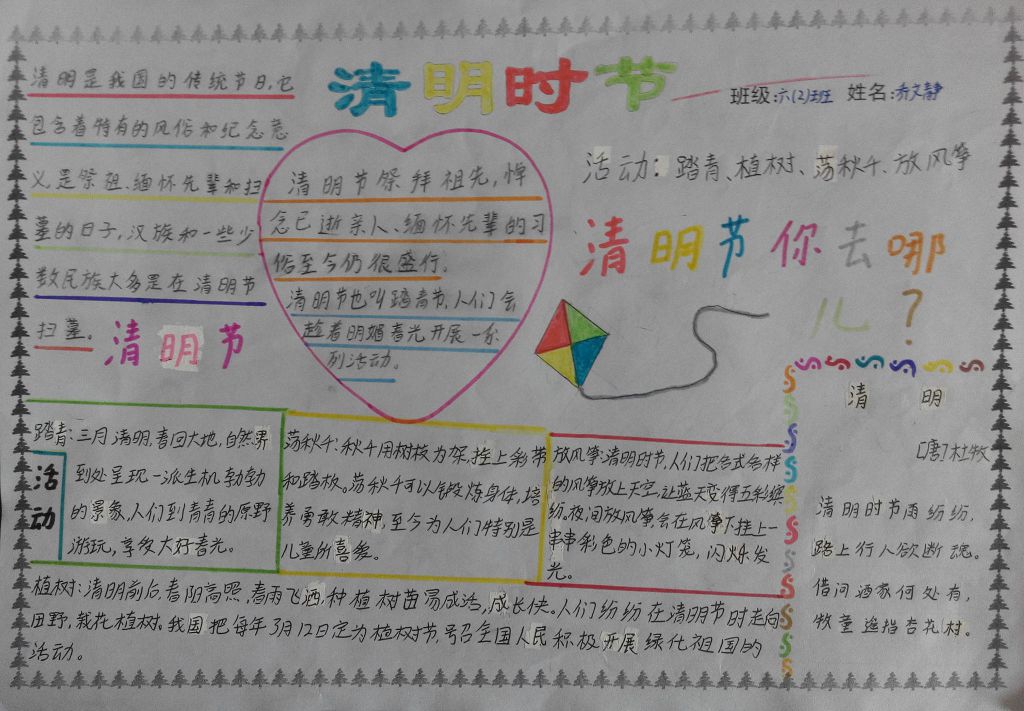 清明时节
班级:六(2)班 姓名:乔文静
清明是我国的传统节日,它
包含着特有的风俗和纪念意
义,是祭祖、缅怀先辈和扫
墓的日子,汉族和一些少
数民族大多是在清明节
扫墓。
清明节
清明节祭拜祖先,悼
念已逝亲人、缅怀先辈的习
俗至今仍很盛行。
清明节也叫踏青节,人们会
趁着明媚春光开展一系
列活动。
活动:踏青、植树、荡秋千、放风筝
清明节你去哪
儿?
活动
踏青:三月清明,春回大地,自然界
到处呈现一派生机勃勃
的景象,人们到青青的原野
游玩,享受大好春光。
荡秋千:秋千用树枝为架,拴上彩带
和踏板。荡秋千可以锻炼身体,培
养勇敢精神,至今为人们特别是
儿童所喜爱。
放风筝:清明时节,人们把各式各样
的风筝放上天空,让蓝天变得五彩缤
纷。夜间放风筝,会在风筝下挂上一
串串彩色的小灯笼,闪烁发
光。
植树:清明前后,春阳高照,春雨飞洒,种植树苗易成活,成长快。人们纷纷在清明节时走向
田野,栽花植树。我国把每年3月12日定为植树节,号召全国人民积极开展绿化祖国的
活动。
清 明
[唐]杜牧
清明时节雨纷纷,
路上行人欲断魂。
借问酒家何处有,
牧童遥指杏花村。